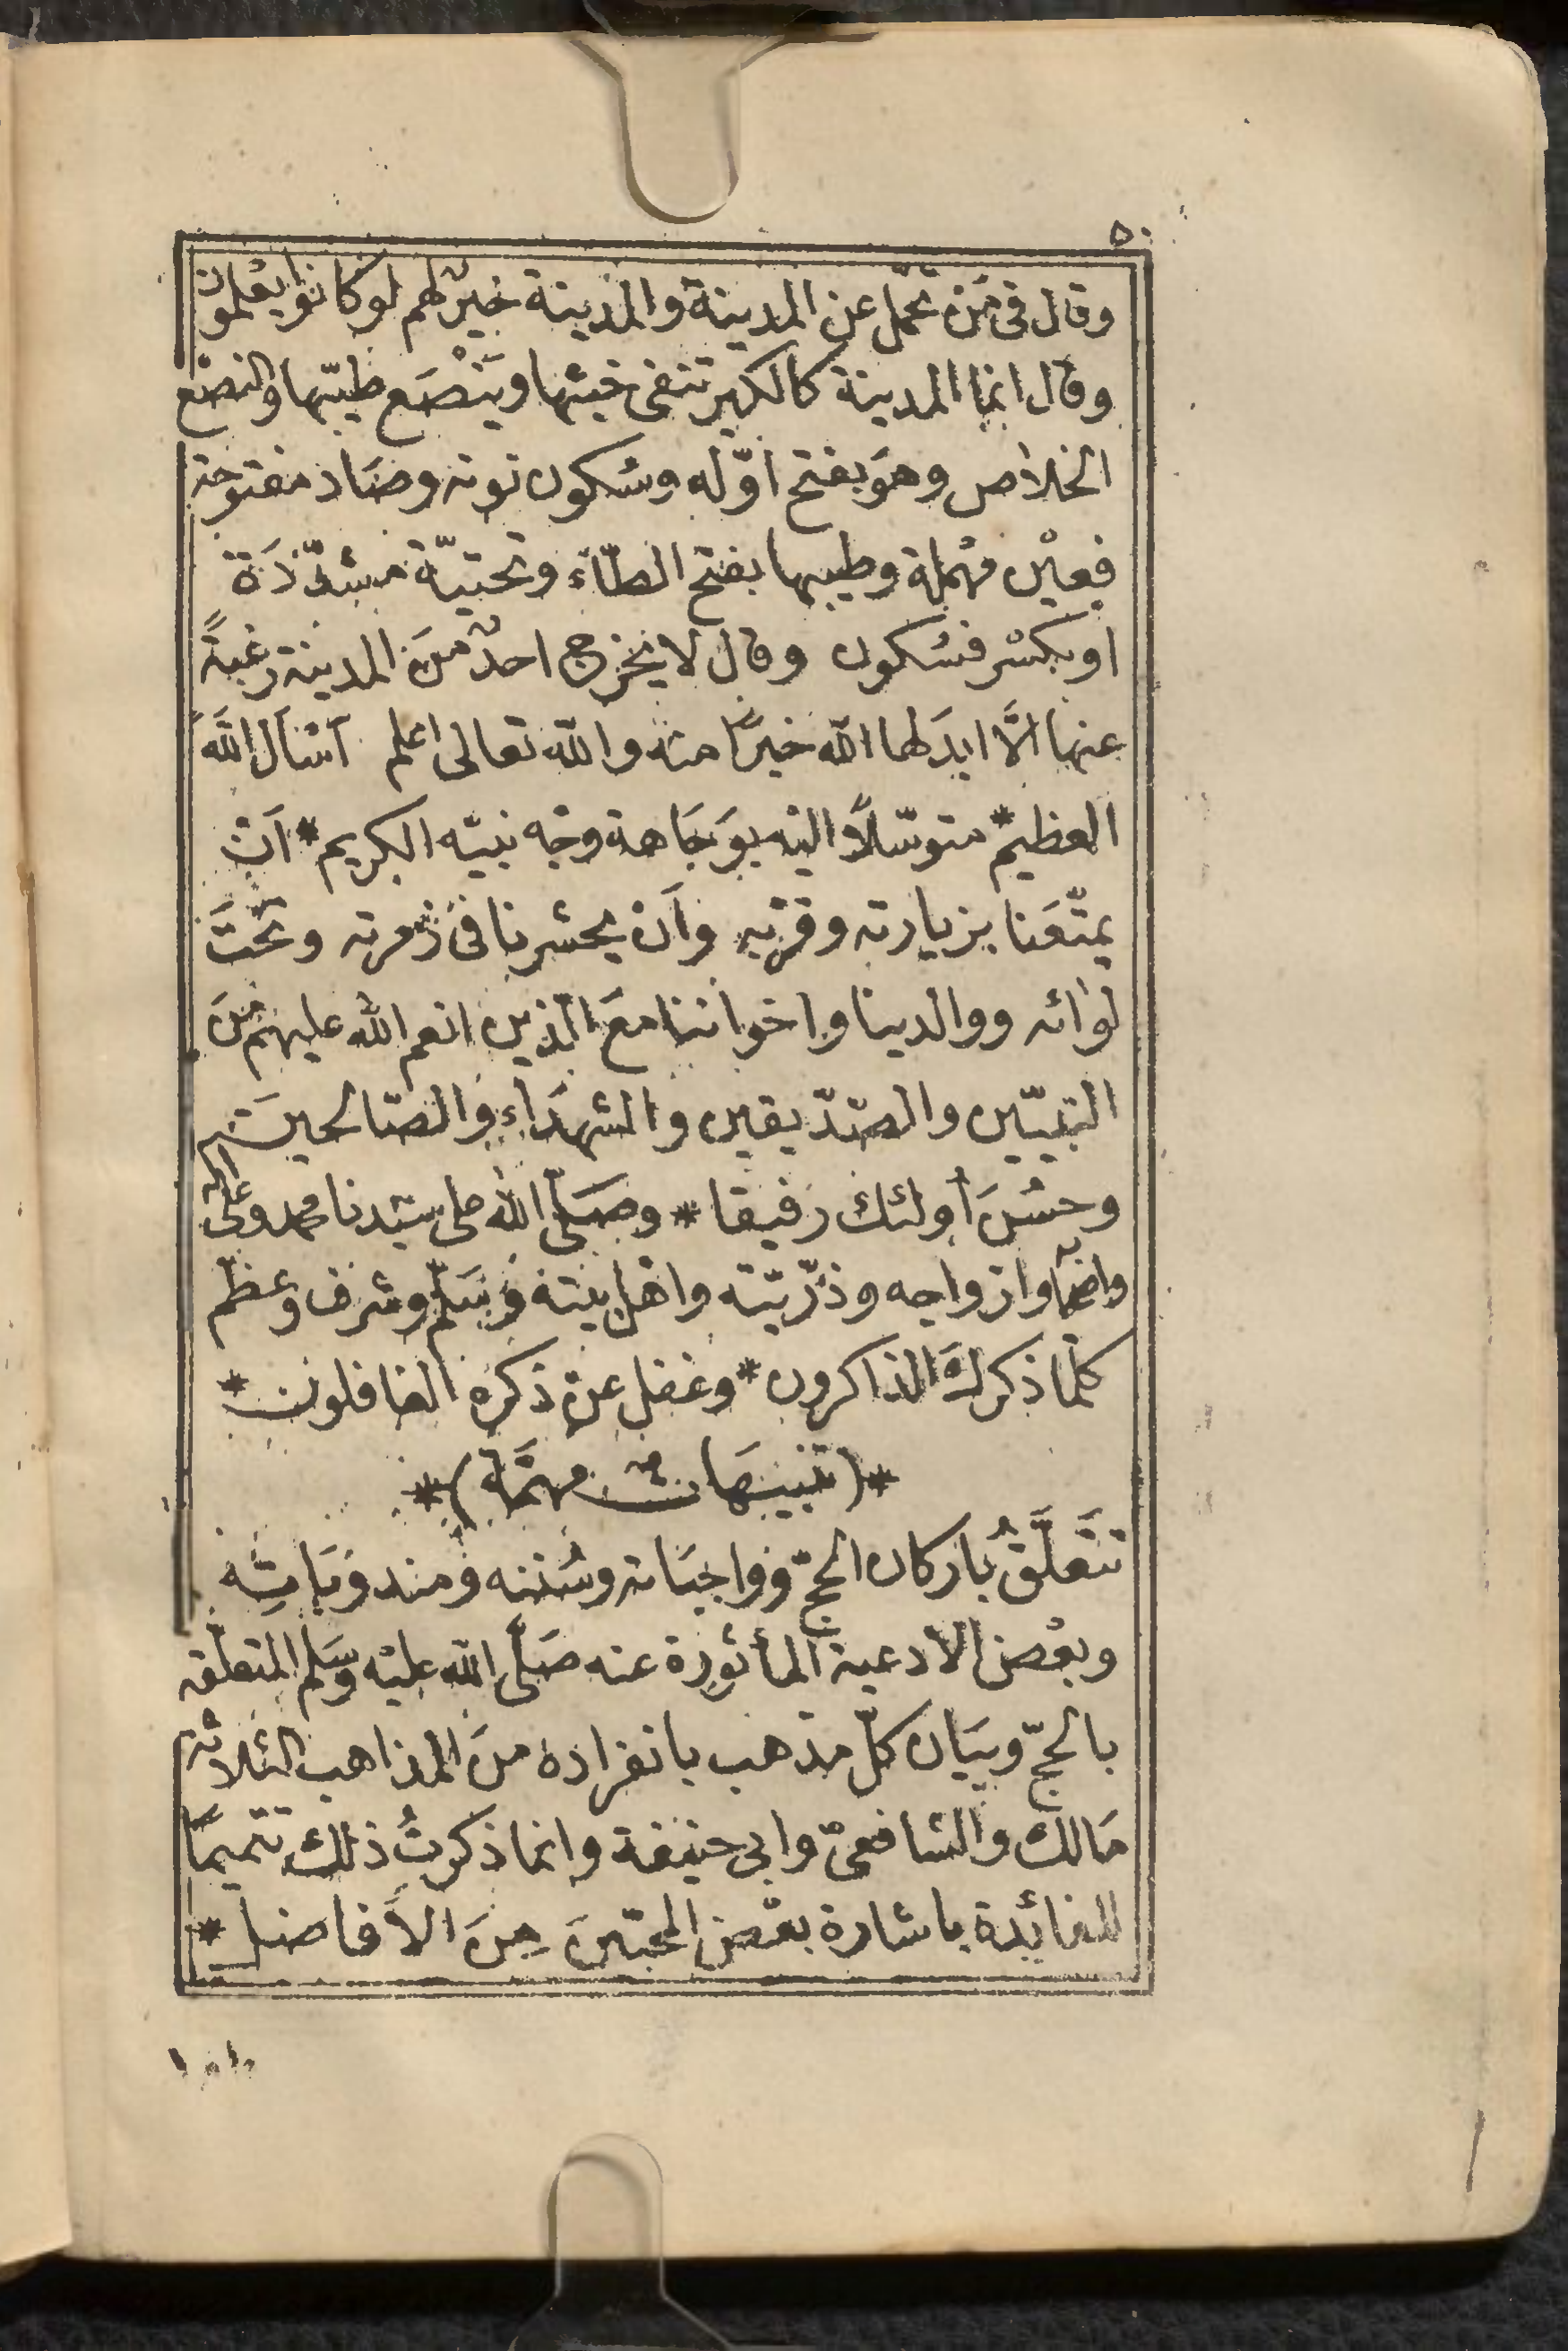 ٥٠
وقال فى مَن تحمّل عن المدينة والمدينة خيرٌ لهم لو كانوا يعْلمون
وقال انما المدينة كالكير تنفى خبثها ويَنْصَع طيّبها والنصْع
الخلاص وهوَ بفتح اوّله وسُكون نونه وصَاد مفتوحة
فعيْن مهْملة وطيبها بفتح الطّآء وتحتيّة مشدّدَة
او بكسْر فسُكون وقال لا يخرج احدٌ منَ المدينة رغبةً
عنها الَّا ابدَلها الله خيرًا منه والله تعالى اعلم اسْأل اللهَ
العظيم * متوسّلاً اليْه بوَجَاهة وجْه نبيّه الكريم * اَنْ
يمتّعَنا بزيارته وقربه واَن يحشرنا فى زُمرته وتحْتَ
لوآئه ووالدينا واخواننا معَ الّذين انعم الله عليهم منَ
النبيّين والصّدّيقين والشهدَاء والصّالحينَ
وحسُنَ أولئك رَفيقا * وصَلّى الله على سيّدنا محمد وعلى آله
واصحابه وازواجه وذرّيّته واهْل بيته وسَلّم وشرف وعظم
كلّما ذكركَ الذاكرون * وغفل عن ذكره الغافلون *
*( تنبيهَاتٌ مهمَّة )*
تتَعلَّقُ باركان الحجّ وواجبَاته وسُننه ومندوبَاته
وبعْض الادعية المأثورة عنه صَلّى الله عليْه وسَلم المتعلّقة
بالحجّ وبيَان كلّ مذهب بانفراده منَ المذاهب الثلاثة
مَالك والشافعىّ وابى حنيفة وانما ذكرتُ ذلك تتميمًا
للفائدة باشارة بعْض المحبّينَ منَ الأَفاضل *